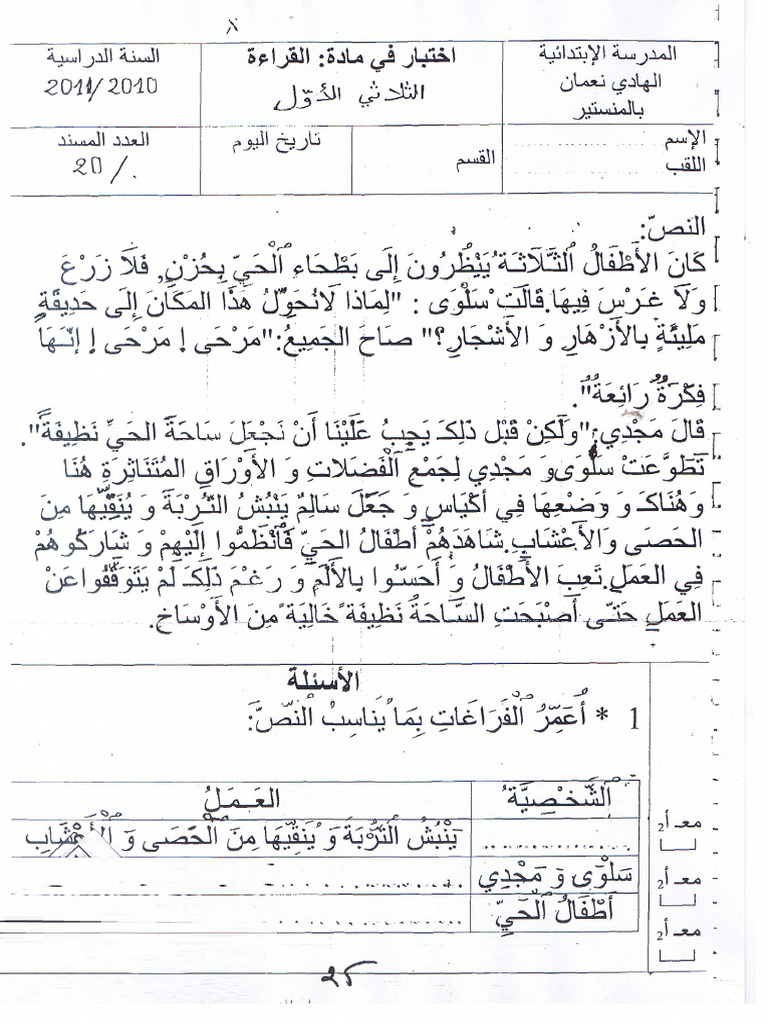 المدرسة الإبتدائية
الهادي نعمان
بالمنستير
اختبار في مادة: القراءة
الثلاثي الأوّل
السنة الدراسية
2011/2010
الإسم ..................
اللقب ..................
القسم
تاريخ اليوم
العدد المسند
20 /.
النصّ:
كَانَ الأَطْفَالُ الثَّلَاثَةُ يَنْظُرُونَ إِلَى بَطْحَاءِ الْحَيِّ بِحُزْنٍ, فَلَا زَرْعَ
وَلَا غَرْسَ فِيهَا.قَالَتْ سَلْوَى : "لِمَاذَا لَانُحَوِّلُ هَذَا المَكَانَ إِلَى حَدِيقَةٍ
مَلِيئَةٍ بِالأَزْهَارِ وَ الأَشْجَارِ؟" صَاحَ الجَمِيعُ:"مَرْحَى ! مَرْحَى ! إِنَّهَا
فِكْرَةٌ رَائِعَةٌ".
قَالَ مَجْدِي:"وَلَكِنْ قَبْلَ ذَلِكَ يَجِبُ عَلَيْنَا أَنْ نَجْعَلَ سَاحَةَ الحَيِّ نَظِيفَةً".
تَطَوَّعَتْ سَلْوَى وَ مَجْدِي لِجَمْعِ الْفَضَلَاتِ وَ الأَوْرَاقِ المُتَنَاثِرَةِ هُنَا
وَهُنَاكَ وَ وَضْعِهَا فِي أَكْيَاسٍ وَ جَعَلَ سَالِمٌ يَنْبُشُ التُّرْبَةَ وَ يُنَقِّيهَا مِنَ
الحَصَى وَالأَعْشَابِ.شَاهَدَهُمْ أَطْفَالُ الحَيِّ فَانْظَمُّوا إِلَيْهِمْ وَ شَارَكُوهُمْ
فِي العَمَلِ.تَعِبَ الأَطْفَالُ وَ أَحَسُّوا بِالأَلَمِ وَ رَغْمَ ذَلِكَ لَمْ يَتَوَقَّفُوا عَنْ
العَمَلِ حَتَّى أَصْبَحَتِ السَّاحَةُ نَظِيفَةً خَالِيَةً مِنَ الأَوْسَاخِ.
الأسئلة
1 * أُعَمِّرُ الْفَرَاغَاتِ بِمَا يُنَاسِبُ النَّصَّ:
الشَّخْصِيَّةُ
العَمَلُ
.................. يَنْبُشُ التُّرْبَةَ وَ يُنَقِّيهَا مِنَ الْحَصَى وَ الْأَعْشَابِ
سَلْوَى وَ مَجْدِي
أَطْفَالُ الْحَيِّ
معـ أ2
معـ أ2
معـ أ2
25